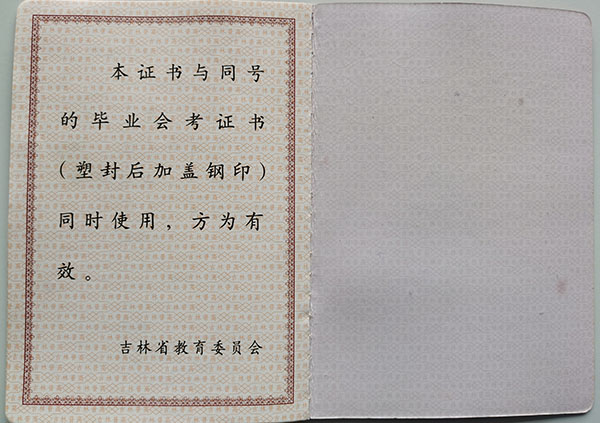 本证书与同号
的毕业会考证书
(塑封后加盖钢印)
同时使用，方为有
效。
吉林省教育委员会